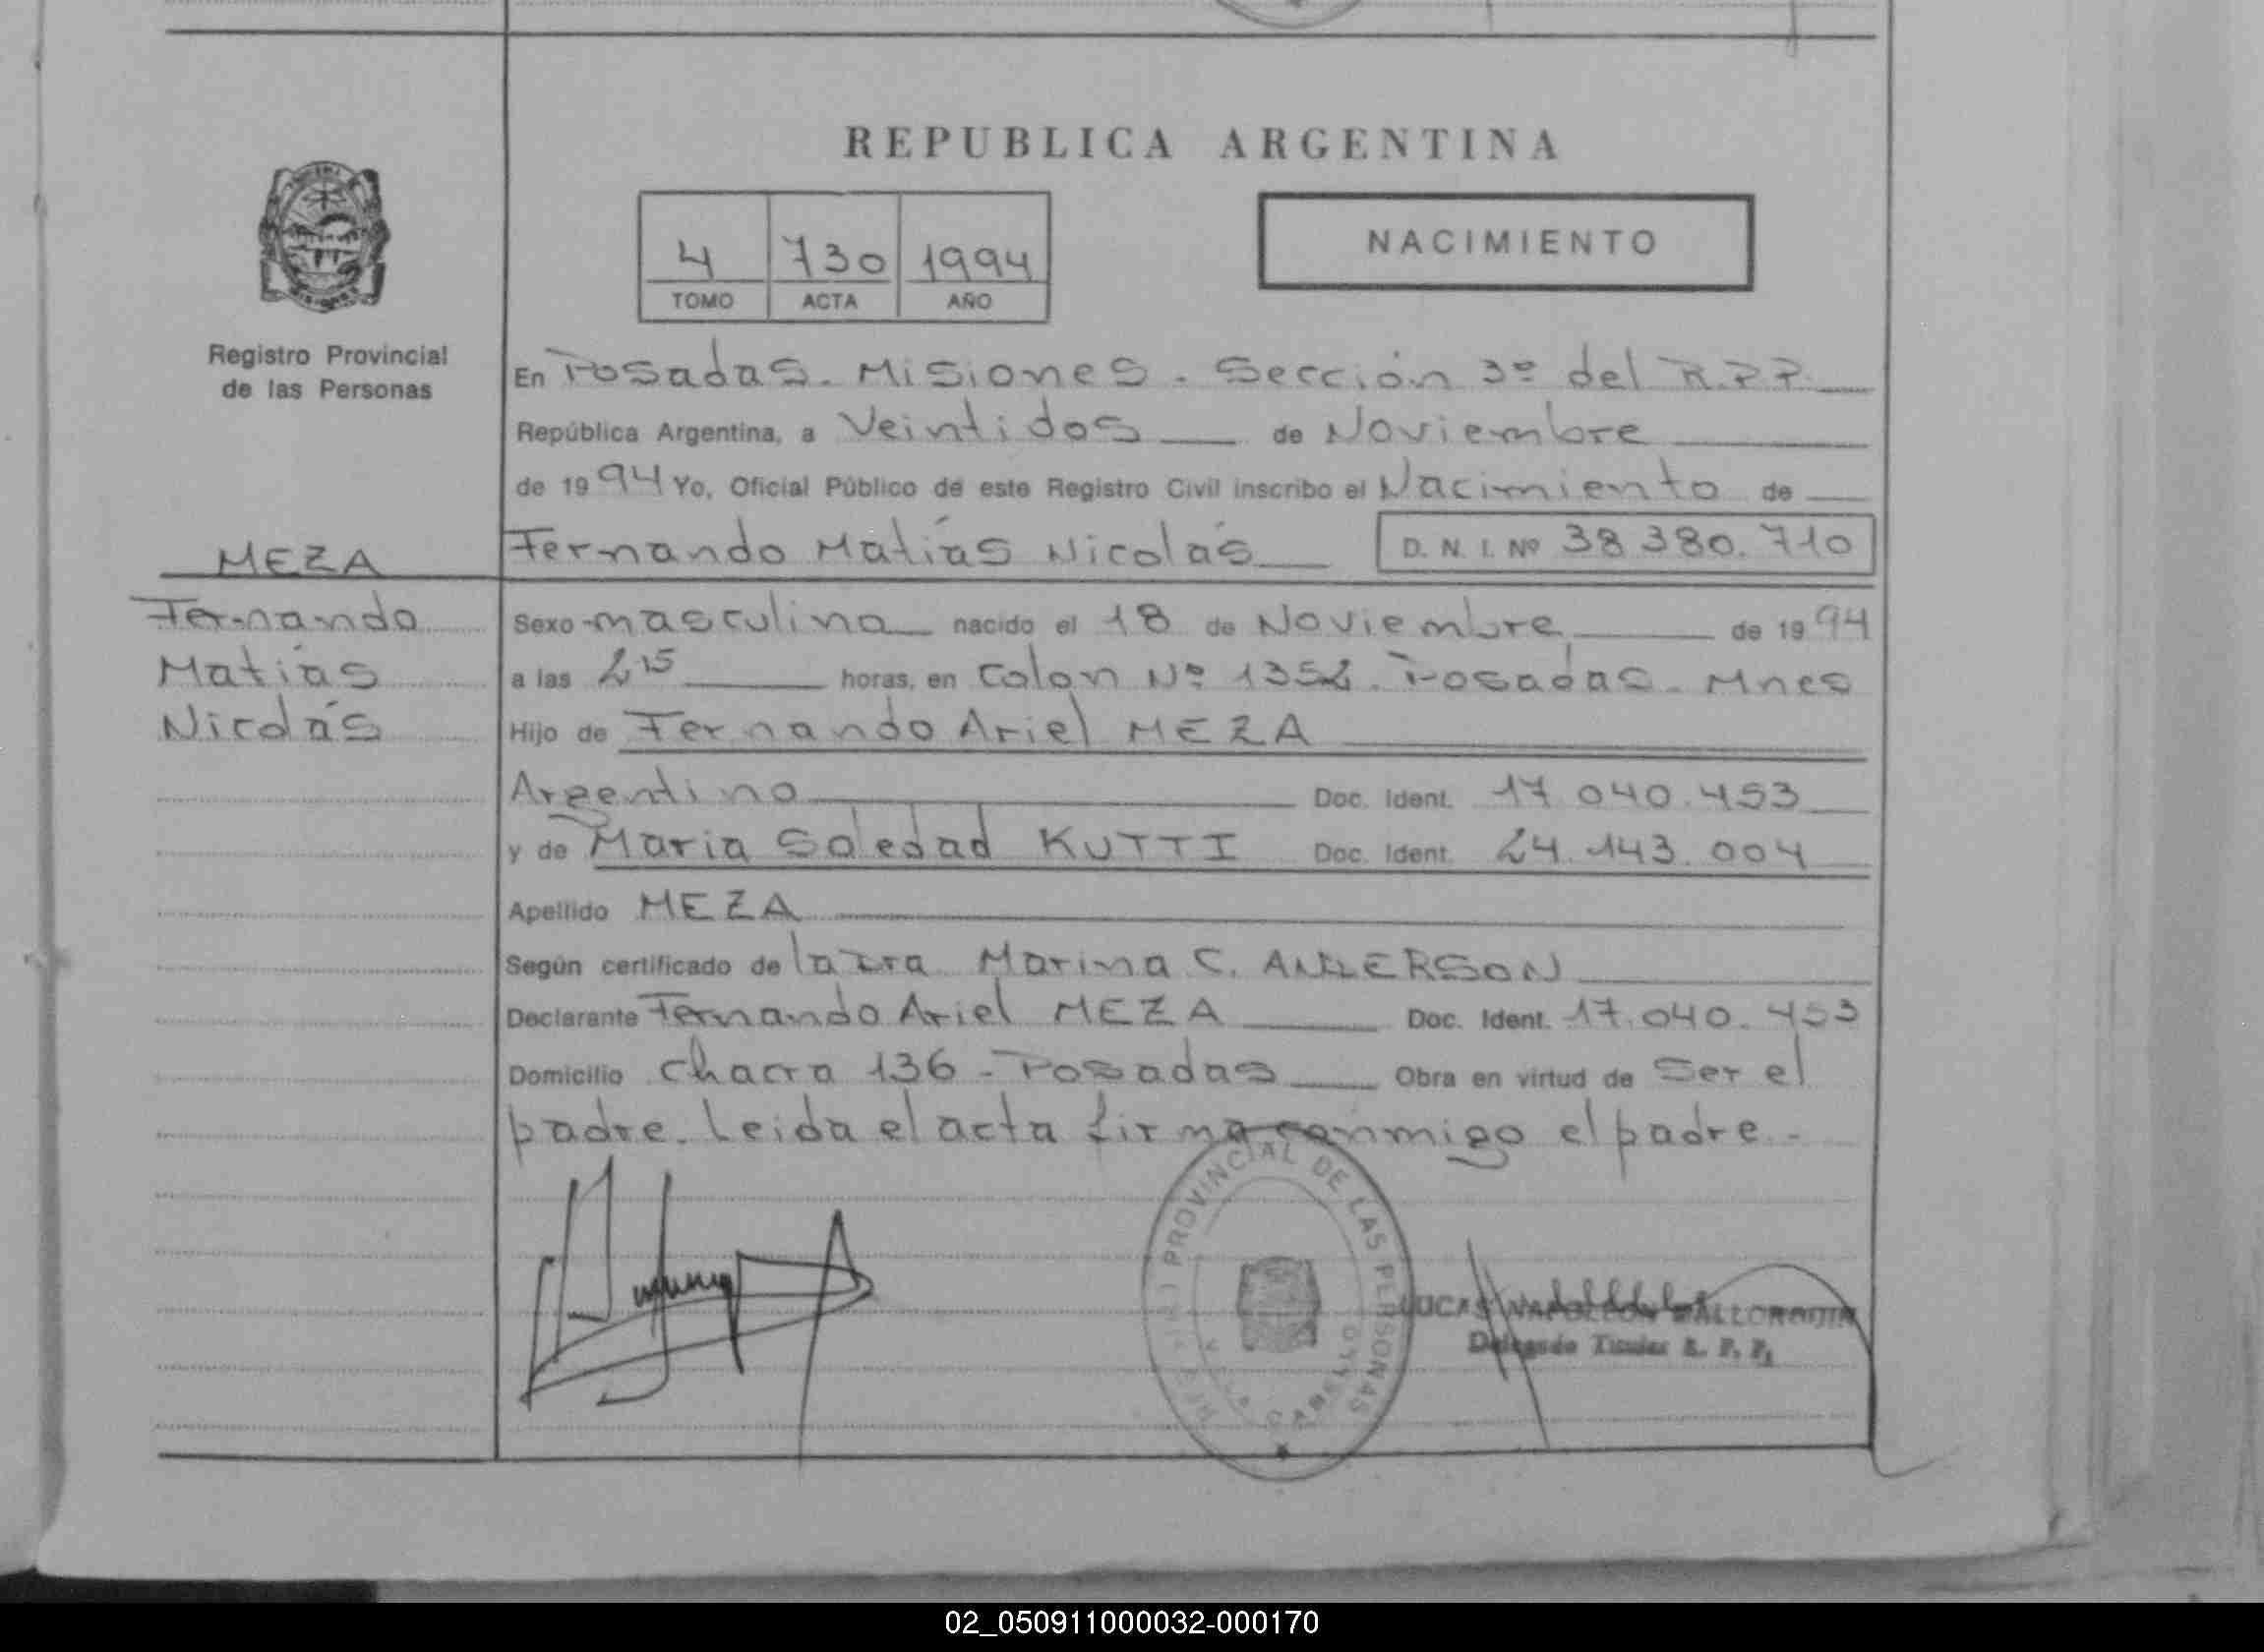 REPUBLICA ARGENTINA
4 730 1994
TOMO ACTA AÑO
NACIMIENTO
Registro Provincial
de las Personas
En Posadas. Misiones. Sección 3º del R.P.P.
República Argentina, a Veintidos de Noviembre
de 1994 Yo, Oficial Público de este Registro Civil inscribo el Nacimiento de
MEZA
Fernando Matías Nicolás D. N. I. Nº 38 380.710
Fernando
Matías
Nicolás
Sexo masculino nacido el 18 de Noviembre de 1994
a las 2 15 horas, en Colon Nº 1352. Posadas. Mnes
Hijo de Fernando Ariel MEZA
Argentino Doc. Ident. 17 040.453
y de Maria Soledad KUTTI Doc. Ident. 24.143.004
Apellido MEZA
Según certificado de la Dra Marina C. ANDERSON
Declarante Fernando Ariel MEZA Doc. Ident. 17.040.453
Domicilio Chacra 136 - Posadas Obra en virtud de Ser el
padre. Leida el acta firma conmigo el padre.-
PROVINCIAL DE LAS PERSONAS
LUCAS NAPOLEON
Delegado Titular R. P. P.
02_050911000032-000170